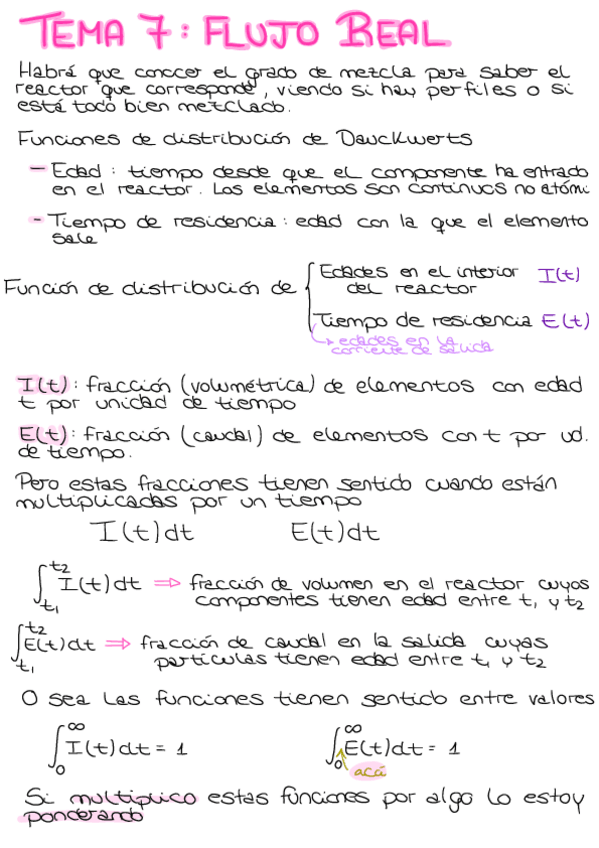 TEMA 7: FLUJO REAL
Habrá que conocer el grado de mezcla para saber el
reactor que corresponde, viendo si hay perfiles o si
está todo bien mezclado.
Funciones de distribución de Dauckwerts
- Edad: tiempo desde que el componente ha entrado
en el reactor. Los elementos son continuos no atómi
- Tiempo de residencia: edad con la que el elemento
sale
Función de distribución de { Edades en el interior I(t)
del reactor
Tiempo de residencia E(t)
↳ edades en la
corriente de salida
I(t): fracción (volumétrica) de elementos con edad
t por unidad de tiempo
E(t): fracción (caudal) de elementos con t por ud.
de tiempo.
Pero estas fracciones tienen sentido cuando están
multiplicadas por un tiempo
I(t)dt E(t)dt
∫t₁t₂ I(t)dt ⇒ fracción de volumen en el reactor cuyos
componentes tienen edad entre t₁ y t₂
∫t₁t₂ E(t)dt ⇒ fracción de caudal en la salida cuyas
partículas tienen edad entre t₁ y t₂
O sea las funciones tienen sentido entre valores
∫₀∞ I(t)dt = 1 ∫₀∞ E(t)dt = 1
acá
Si multiplico estas funciones por algo lo estoy
ponderando